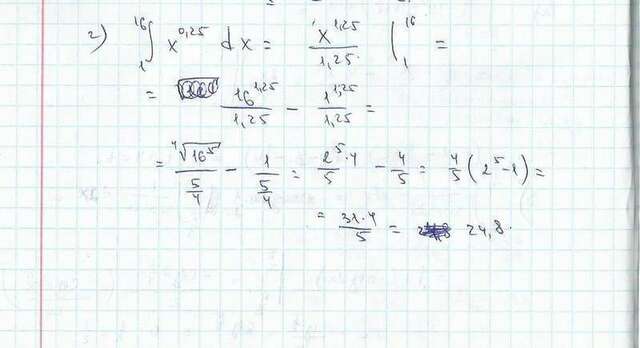 2) ∫₁¹⁶ x^0,25 dx = x^1,25 / 1,25 |₁¹⁶ =
= 16^1,25 / 1,25 - 1^1,25 / 1,25 =
= ⁴√16⁵ / (5/4) - 1 / (5/4) = 2⁵·4 / 5 - 4/5 = 4/5 (2⁵-1) =
= 31·4 / 5 = 24,8.